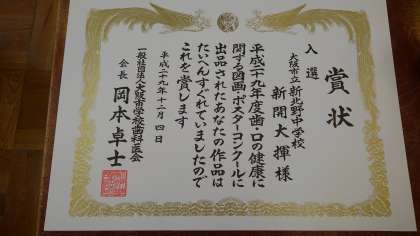 賞状
入選
大阪市立新北野中学校
新開大揮様
平成二十九年度歯・口の健康に
関する図画・ポスターコンクールに
出品されたあなたの作品は
たいへんすぐれていましたので
これを賞します
平成二十九年十二月四日
一般社団法人大阪市学校歯科医会
会長 岡本卓士